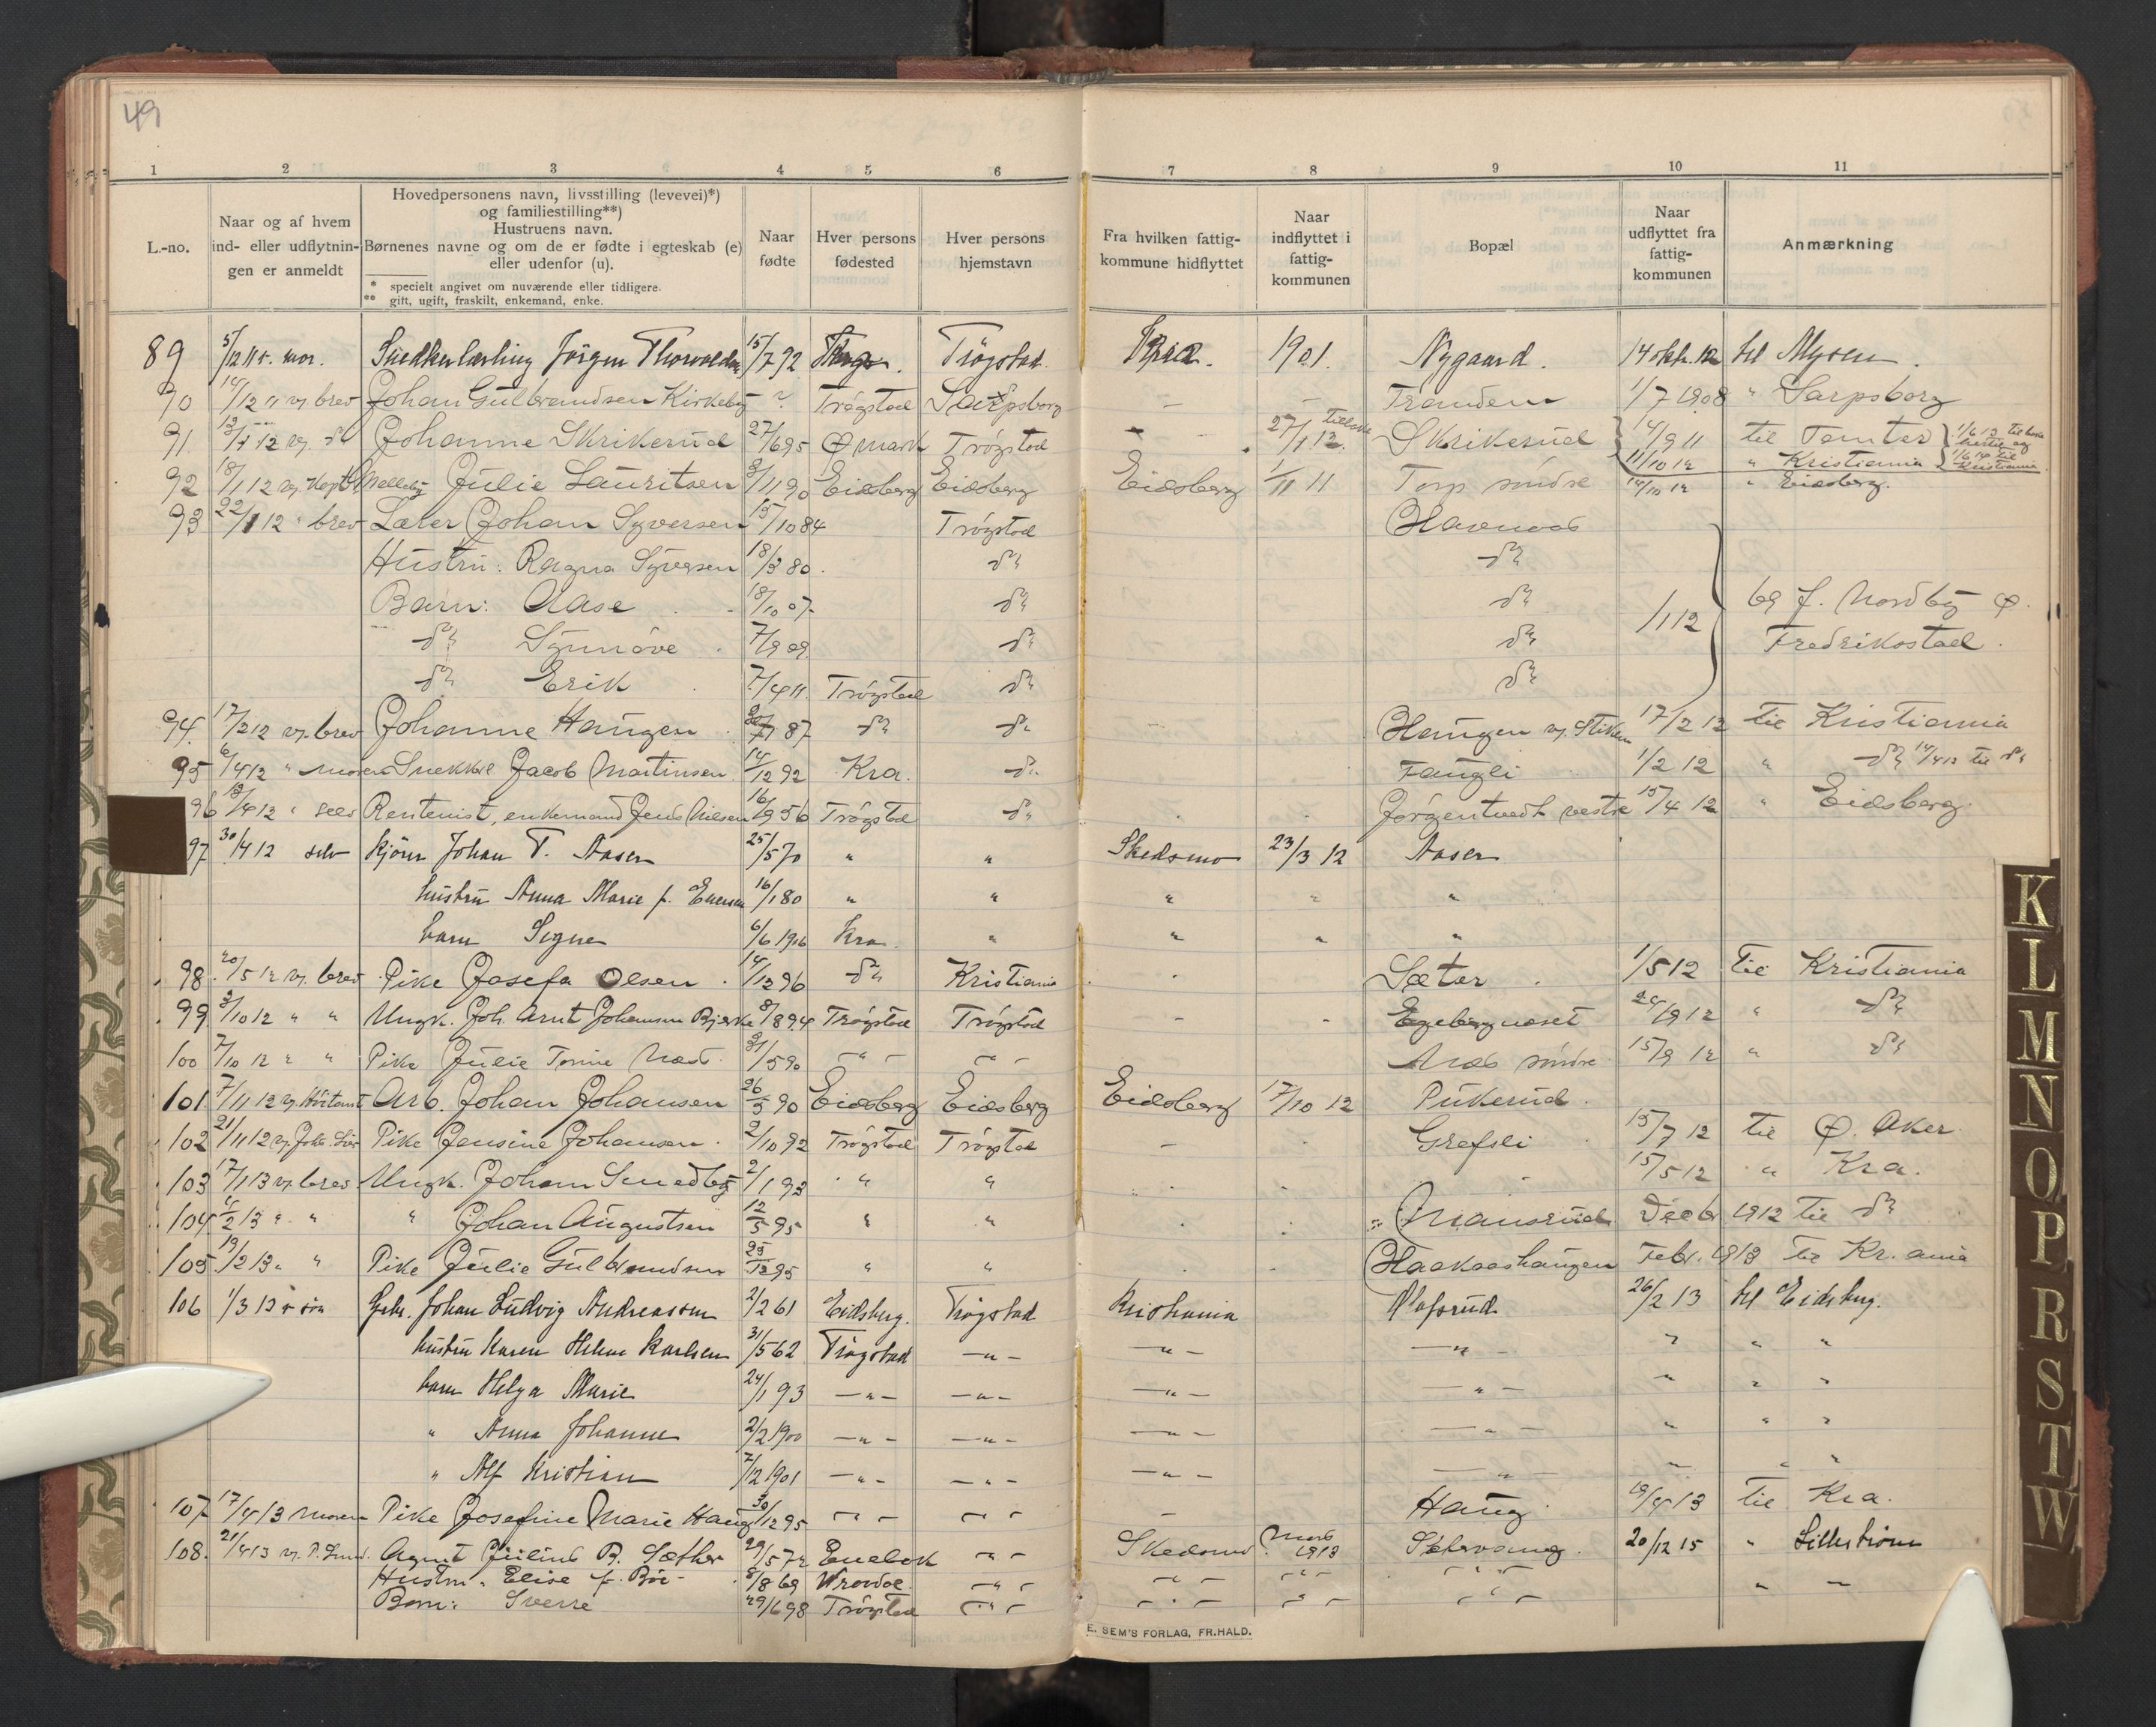 49
1 2 3 4 5 6 7 8 9 10 11
L.-no.
Naar og af hvem ind- eller udflytnin-gen er anmeldt
Hovedpersonens navn, livsstilling (levevei)*) og familiestilling**)
Hustruens navn.
Børnenes navne og om de er fødte i egteskab (e) eller udenfor (u).
* specielt angivet om nuværende eller tidligere.
** gift, ugift, fraskilt, enkemand, enke.
Naar fødte
Hver persons fødested
Hver persons hjemstavn
Fra hvilken fattig-kommune hidflyttet
Naar indflyttet i fattig-kommunen
Bopæl
Naar udflyttet fra fattig-kommunen
Anmærkning
89 5/12 11 mor. Snedkerlærling Jørgen Thorvaldsen 15/7 92 Trøgstad 1901. Nygaard. 14 okt. 12 til Mysen.
90 brev Johan Gulbrandsen Kirkeby ? Trøgstad Sarpsborg - - Tranden 1/7 1908 " Sarpsborg
91 Johanne Skrikerud 27/6 95 Ø mark Trøgstad - 27/1 12 Skrikerud 14/9 11 til Tomter
11/10 12 " Kristiania
92 18/1 12 Julie Lauritsen 3/11 90 Eidsberg Eidsberg Eidsberg 1/11 11 Torp søndre 14/10 12 " Eidsberg.
93 22/1 12 " brev Lærer Johan Syversen 15/10 84 Trøgstad Havnaas
Hustru: Ragna Syversen 18/3 80 do do
Barn: Aase 18/10 07 do do /1 12 bg f. Nordby Ø.
do Synnøve 7/9 09 do do Fredrikstad.
do Erik 7/4 11 Trøgstad do do
94. 17/2 12 v. brev Johanne Haugen 87 do do - - Haugen v. Stiken 17/2 12 til Kristiania
95 6/4 12 " moren Snekker Jacob Martinsen 14/12 92 Kra. do Faugli 1/2 12 " do 14/4 12 til do
96 13/4 12 " selv Rentenist, enkemand Jens Nilsen 16/9 56 Trøgstad do Jørgentvedt vestre 15/4 12 " Eidsberg
97 30/4 12 selv Kjører Johan T. Aasen 25/5 70 " " Skedsmo 23/3 12 Aasen
hustru Anna Marie f. Evensen 16/1 80 " " " " "
barn Signe 6/6 1906 Kra. " " " "
98. 20/5 12 v. brev Pike Josefa Olsen 14/12 96 do Kristiania Sæter 1/5 12 til Kristiania
99 3/10 12 " " Ungk. Joh. Arnt Johansen Bjerke 8/8 94 Trøgstad Trøgstad - - Egebergnæset 24/9 12 " do
100 7/10 12 " " Pike Julie Tomine Næs 31/5 90 - " - - " - Næs søndre 15/9 12 " do
101 7/11 12 Arb. Johan Johansen 26/3 90 Eidsberg Eidsberg Eidsberg 17/10 12 Pukerud.
102 21/11 12 Pike Jensine Johansen. 2/10 92 Trøgstad Trøgstad - Grefsli 15/7 12 til Ø. Aker
103 17/1 13 v. brev Ungk. Johan Smedby 2/1 93 " " 15/5 12 " Kra.
104 /2 13 " " " Johan Augustsen 12/5 95 " " Mansrud Decbr 1912 til do
105 19/2 13 " " Pike Julie Gulbrandsen 25/12 95 " " Haakaashaugen Febr. 1913 til Kr.ania
106 1/3 13 Johan Ludvig Andreassen 2/2 61 Eidsberg. Trøgstad Kristiania Olafsrud 26/2 13 til Eidsberg.
hustru Karen Helene Karlsen 31/5 62 Trøgstad - " - - " - - " - " " "
barn Helga Marie 24/1 93 - " - - " - - " - - " - " " "
" Anna Johanne 2/2 1900 - " - - " - - " - - " - " " "
" Alf Kristian 7/12 1901 - " - - " - - " - - " - " " "
107 17/4 13 moren Pike Josefine Marie Haug 30/12 95 - " - - " - - Haug 19/4 13 til Kra.
108. 21/4 13 Agent Julius B. Sæther 29/5 72 Enebak - " - Skedsmo 1913 Sætervang. 20/12 15 " Lillestrøm
Hustru. Elise f. Bøe 8/8 69 - " - - " - - " - - " - " "
Barn: Sverre 29/6 98 Trøgstad - " - - " - - " - - " -
E. SEM'S FORLAG, FR.HALD.
K
L
M
N
O
P
R
S
T
W